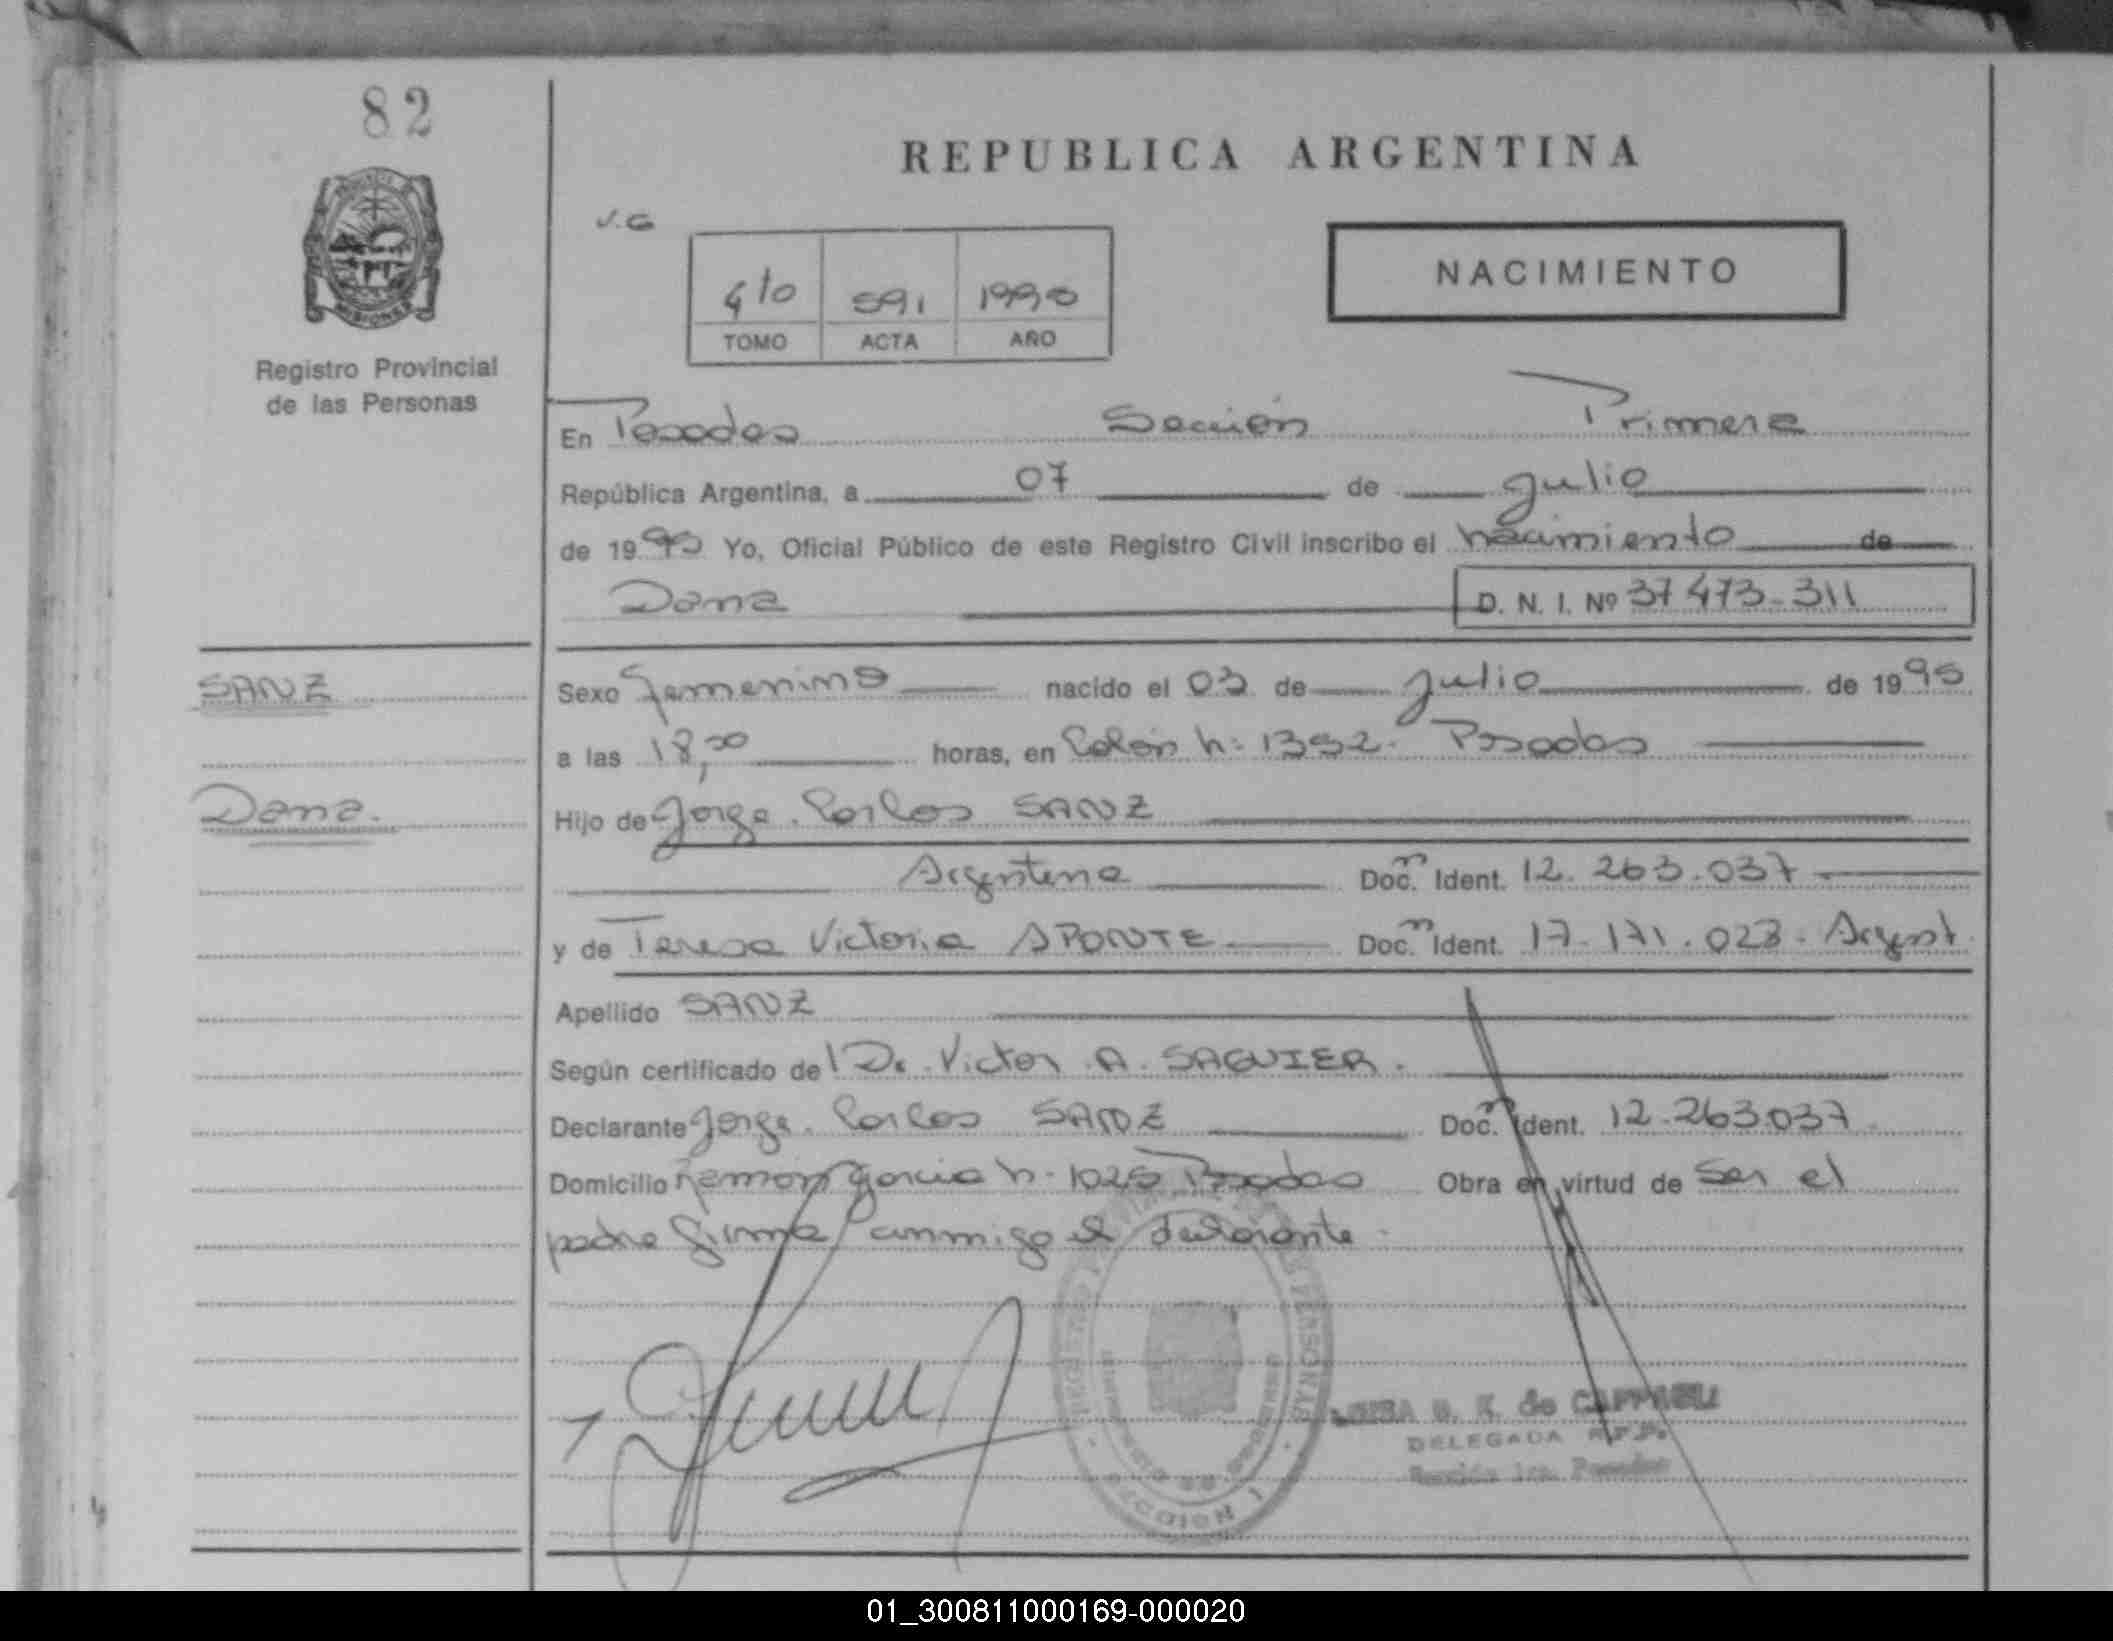 82
REPUBLICA ARGENTINA
V.G
NACIMIENTO
4to 591 1990
TOMO ACTA AÑO
Registro Provincial
de las Personas
En Posadas Sección Primera
República Argentina, a 07 de julio
de 1990 Yo, Oficial Público de este Registro Civil inscribo el nacimiento de
Dana D. N. I. Nº 37 473-311
SANZ
Sexo femenino nacido el 03 de julio de 1990
a las 18,00 horas, en Colón n: 1392. Posadas
Dana.
Hijo de Jorge Carlos SANZ
Argentina Doc. Ident. 12.263.037
y de Teresa Victoria APONTE Doc. Ident. 17.171.023 - Argent
Apellido SANZ
Según certificado del Dr. Victor A. SAGUIER.
Declarante Jorge Carlos SANZ Doc. Ident. 12.263.037
Domicilio Ramón García n. 1025 Posadas Obra en virtud de ser el
padre firma conmigo el declarante.
DELEGADA R.P.P.
Sección 1ra. Posadas
01_300811000169-000020